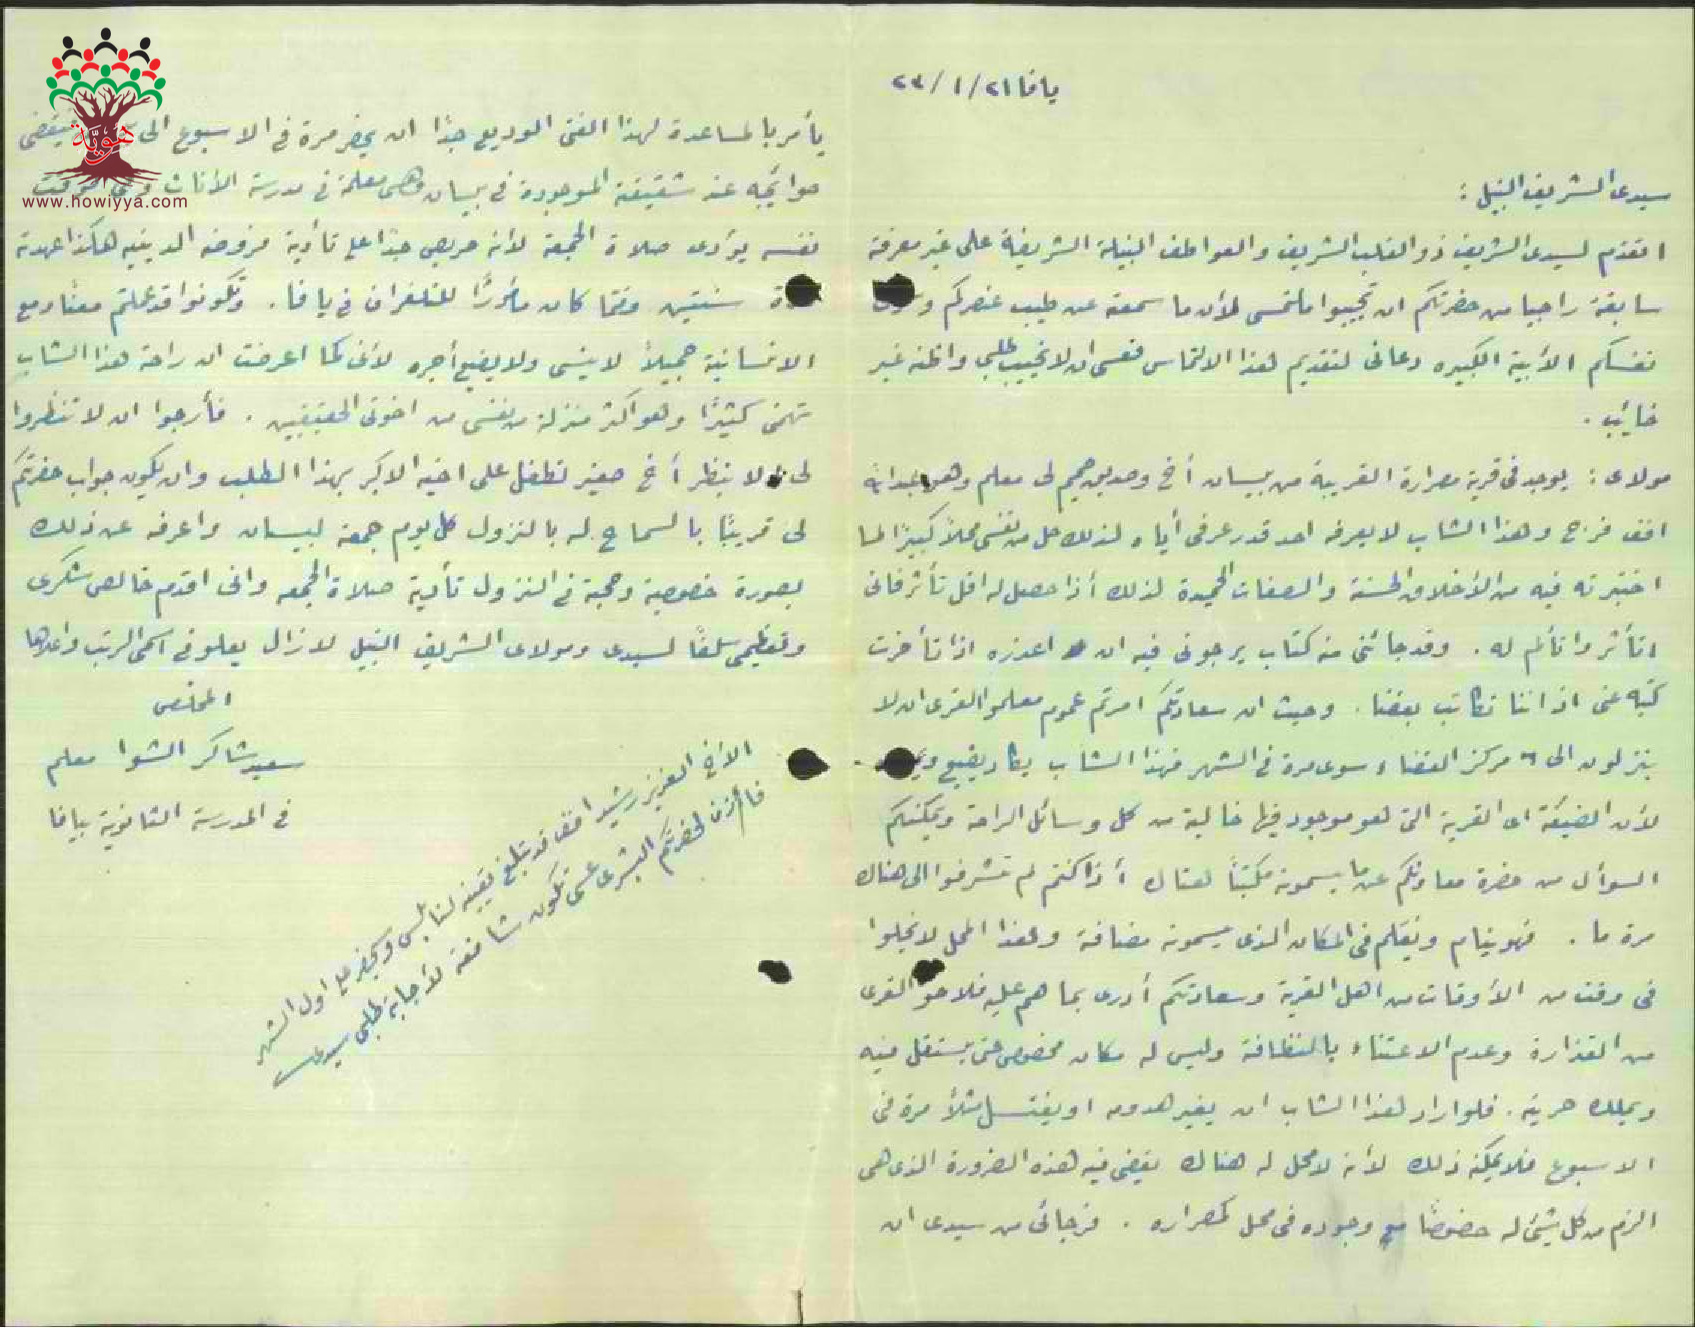 يافا ٢١/١/٢٣
سيدى الشريف النبيل :
اتقدم لسيدى الشريف ذو القلب الشريف والعواطف النبيلة الشريفة على غير معرفة
سابقة راجيا من حضرتكم ان تجيبوا ملتمسى لأن ما سمعته عن طيب عنصركم
نفسكم الأبية الكبيره دعانى لتقديم هذا الالتماس فعسى ان لا تخيب طلبى واظنه غير
خائب .
مولاى : يوجد فى قرية مصرارة القريبة من بيسان أخ وصديق حميم لى معلم وهو عبدالله
افندى فرح وهذا الشاب لا يعرفه احد قدر عرفى أياه لذلك حل من نفسى محلاً كبيرًا لما
اختبرته فيه من الأخلاق الحسنة والصفات الحميدة لذلك أذا حصل له اقل تأثر فانى
اتأثر واتألم له . وقد جائنى منه كتاب يرجونى فيه ان اعذره اذا تأخرت
كتبه عنى اذ اننا نكاتب بعضنا . وحيث ان سعادتكم امرتم عموم معلموا القرى ان لا
ينزلون الى مركز القضاء سوى مرة فى الشهر فهذا الشاب يكاد يضيع .
لأن الضيعة اى القرية التى هو موجود فيها خالية من كل وسائل الراحة ويمكنكم
السوأل من حضرة معاونكم عن ما يسمونه مكتبًا هناك أذا كنتم لم تشرفوا الى هناك
مرة ما . فهو ينام ويعلم فى المكان الذى يسمونه مضافة وهذا المحل لا يخلوا
فى وقت من الأوقات من اهل القرية وسعادتكم أدرى بما هم عليه فلاحو القرى
من القذارة وعدم الاعتناء بالنظافة وليس له مكان مخصوص حتى يستقل فيه
ويملك حريته . فلو اراد هذا الشاب ان يغير هدومه او يغتسل مثلاً مرة فى
الاسبوع فلا يمكنه ذلك لأنه لا محل له هناك يقضى فيه هذه الضرورة الذى هى
الزم من كل شيئ له خصوصًا مع وجوده فى محل كمصراره . فرجائى من سيدى ان
يأمر بالمساعدة لهذا الفتى الوديع جدًا ان يحضر مرة فى الاسبوع الى فيقضى
حوائجه عند شقيقته الموجودة فى بيسان وهى معلمة فى مدرسة الأناث
نفسه يؤدى صلاة الجمعة لأنه حريص جدًا على تأدية فروضه الدينيه هكذا عهدته
سنتين وقتما كان مأمورًا للتلغراف فى يافا . وتكونوا قد عملتم معنا ومع
الانسانية جميلاً لا ينسى ولا يضيع أجره لأنى كما اعرضت ان راحة هذا الشاب
تهمنى كثيرًا وهو اكثر منزلة من نفسى من اخوتى الحقيقيين . فأرجوا ان لا تنظروا
لى الا بنظر أخ صغير تطفل على اخيه الاكبر بهذا الطلب وان يكون جواب حضرتكم
لى قريبًا بالسماح له بالنزول كل يوم جمعة لبيسان واعرفه عن ذلك
بصورة خصوصية وحجته فى النزول تأدية صلاة الجمعه وانى اقدم خالص شكرى
وتعظيمى سلفًا لسيدى ومولاى الشريف النبيل لا زال يعلو فى اسمى الرتب واعلاها
المخلص
سعيد شاكر الشوا معلم
فى المدرسة الثانوية بيافا
الأخ العزيز رشيد افندى قد تبلغ تعيينه لنابلس وسيحضر على اول الشهر
فأزف لحضرتكم البشرى عسى تكون شافعة لأجابة طلبى سيدى
هوية
www.howiyya.com